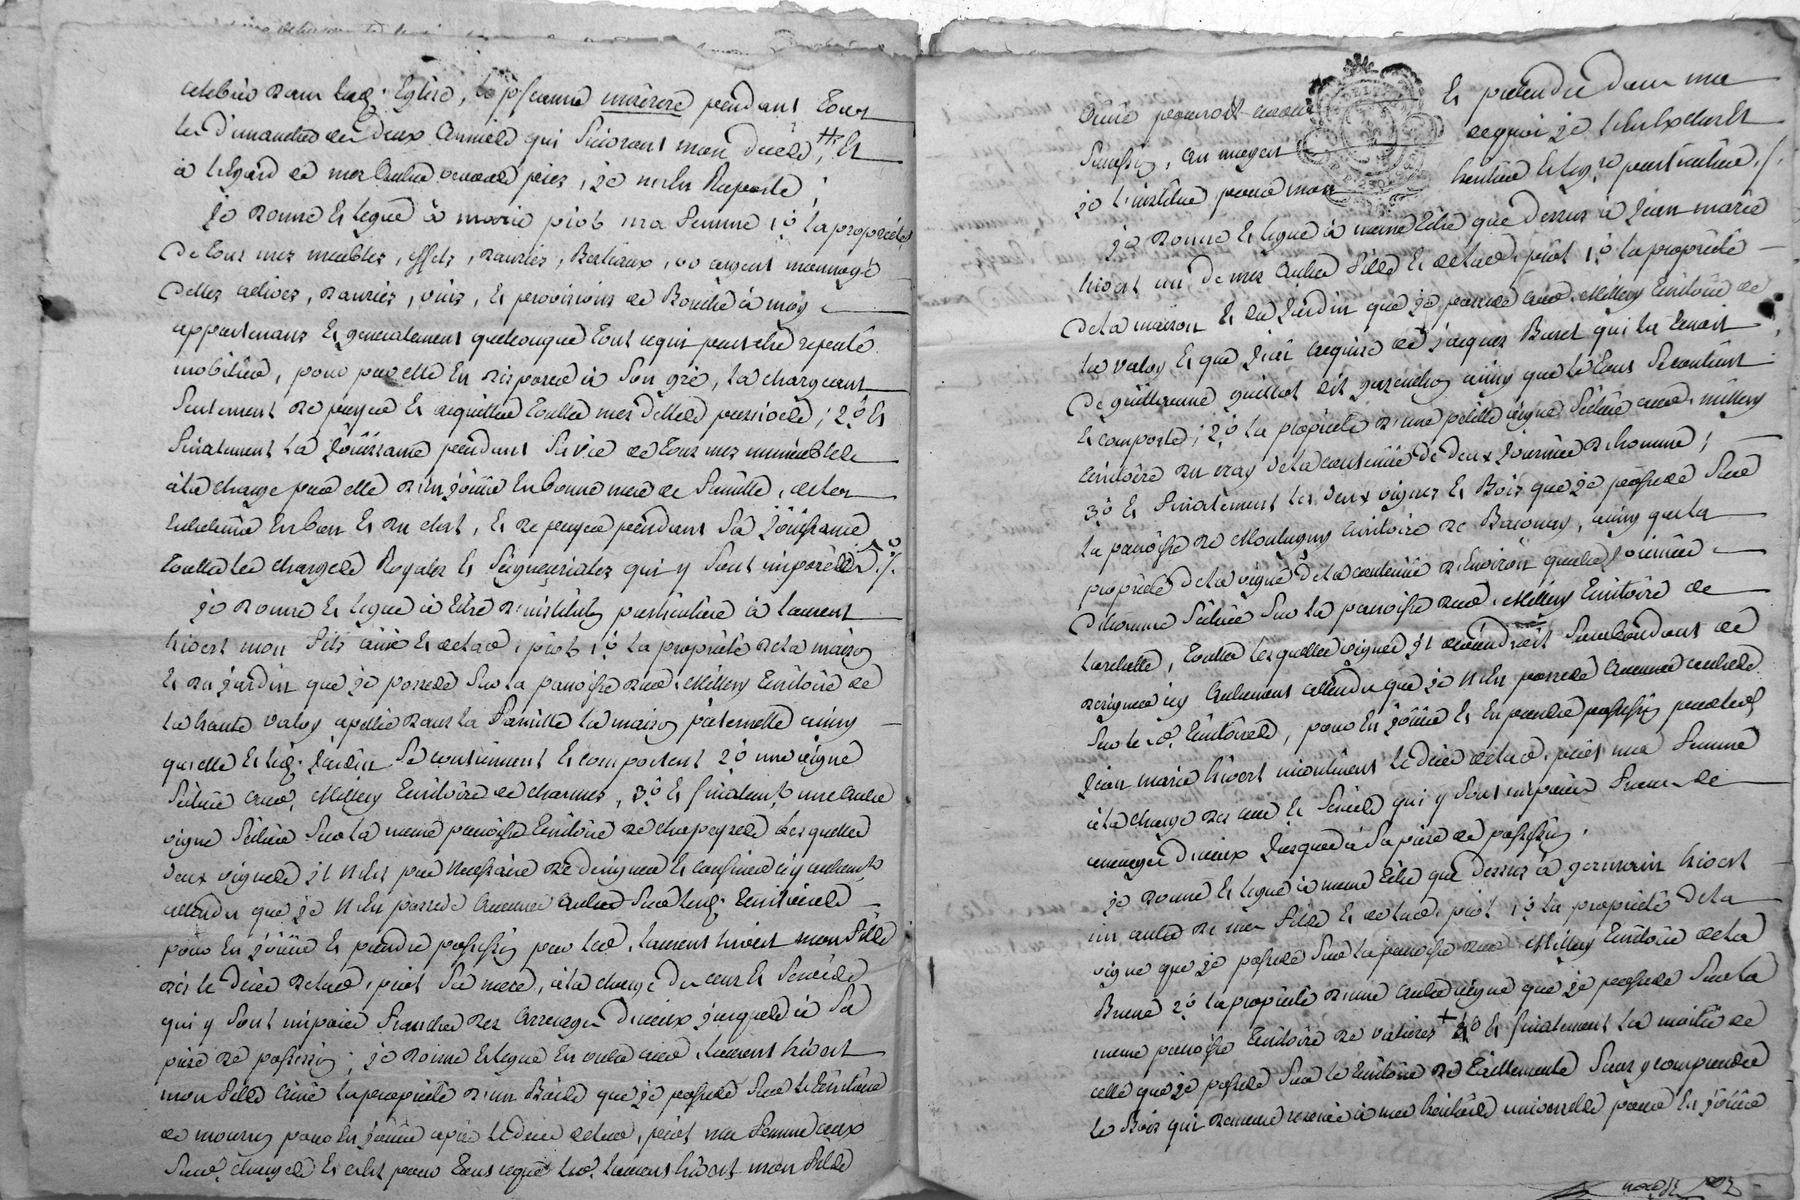 celebrée dans lad. Eglise, le pseaume miserere pendant tous
les dimanches des deux années qui suivront mon décés, Et
a l'égard de mes autres œuvres pies, je m'en Raporte
Je donne et legue à marie piot ma femme 1.° la propriété
de tous mes meubles, effets, danrées, Bestiaux, or argent monnoyé
dettes actives, danrées, vins, et provisions de Bouche à moy
appartenans et generalement quelconque tout ce qui peut etre reputé
mobilier, pour par elle en disposer à son gré, la chargeant
seulement de payer et acquitter touttes mes dettes passives; 2.° Et
finalement la jouissance pendant sa vie de tous mes immeubles
à la charge par elle d'en jouir en bonne mere de famille, de les
entretenir en bon et du état, et de payer pendant sa jouissance
touttes les charges Royales et seigneuriales qui y sont imposées
je donne et legue à titre d'institution particuliere à laurent
hivert mon fils ainé et de lad. piot 1.° la propriété de la maison
et du jardin que je possede sur la paroisse dud. Millery territoire de
la haute valoy apellée dans la famille la maison paternelle ainsy
qu'elle et led. jardin se contiennent et comportent 2.° une vigne
située aud. Millery territoire de charmes, 3.° et finalem.t une autre
vigne située sur la meme paroisse territoire de chapeyre lesquelles
deux vignes il n'est pas necessaire de designer et confiner icy autrem.t
attendu que je n'en possede aucunes autres sur lesd. territoires
pour en jouir et prendre possession par led. laurent hivert mon fils
dès le décès de lad. piot sa mere, à la charge des cens et servis
qui y sont imposés franches des arrerages d'iceux jusques à sa
prise de possession; je donne et legue en outre aud. laurent hivert
mon fils ainé la propriété d'un Bois que je possede sur le territoire
de mourry pour en jouir après le décès de lad. piot ma femme aux
susd. charges et c'est pour tous ce que led. laurent hivert mon fils
ainé pourroit avoir et pretendre dans ma
succession, au moyen de quoi je
je l'institue pour mon heritier et leg.re particulier./.
je donne et legue à meme titre que dessus à jean marie
hivert un de mes autres fils et de lad. piot 1.° la propriété
de la maison et du jardin que je possede aud. Millery territoire de
la valoy et que j'ai acquise de jacques Buret qui la tenoit
de guillaume guillot ainsy que le tout se contient
et comporte; 2.° la propriété d'une petite vigne située aud. millery
territoire du cray de la contenue de deux journées d'homme;
3.° et finalement les deux vignes et Bois que je possede sur
la paroisse de Montagny territoire de, ainsy que la
propriété de la vigne de la contenue d'environ quatre journées
d'homme située sur la paroisse dud. Millery territoire de
, touttes lesquelles vignes il deviendroit surabondant de
designer icy autrement attendu que je n'en possede aucunes autres
sur les d. territoires, pour en jouir et en prendre possession par led.
jean marie hivert incontinent le décès de lad. piot ma femme
à la charge des cens et servis qui y sont imposés francs de
arrerages d'iceux jusques à sa prise de possession.
je donne et legue à meme titre que dessus à germain hivert
un autre de mes fils et de lad. piot 1.° la propriété de la
vigne que je possede sur la paroisse dud. Millery territoire de la
Brune 2.° la propriété d'une autre vigne que je possede sur la
meme paroisse territoire de valieres + et finalement la moitié de
celle que je possede sur le territoire de sans y comprendre
le Bois qui demeure reservé à mes heritiers universelles pour en jouir